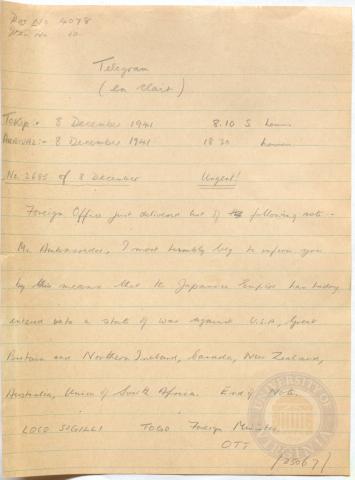 Pros No 4078
No. 10
Telegram
(en clair)
Tokyo:- 8 December 1941 8.10 S hours
Arrival:- 8 December 1941 18 30 hours
No. 2685 of 8 December Urgent!
Foreign Office just delivered text of following note:-
Mr. Ambassador, I most humbly beg to inform you
by this means that the Japanese Empire has today
entered into a state of war against U.S.A, Great
Britain and Northern Ireland, Canada, New Zealand,
Australia, Union of South Africa. End of Note.
LOCO SIGILLI TOGO Foreign Minister.
OTT
UNIVERSITY OF VIRGINIA